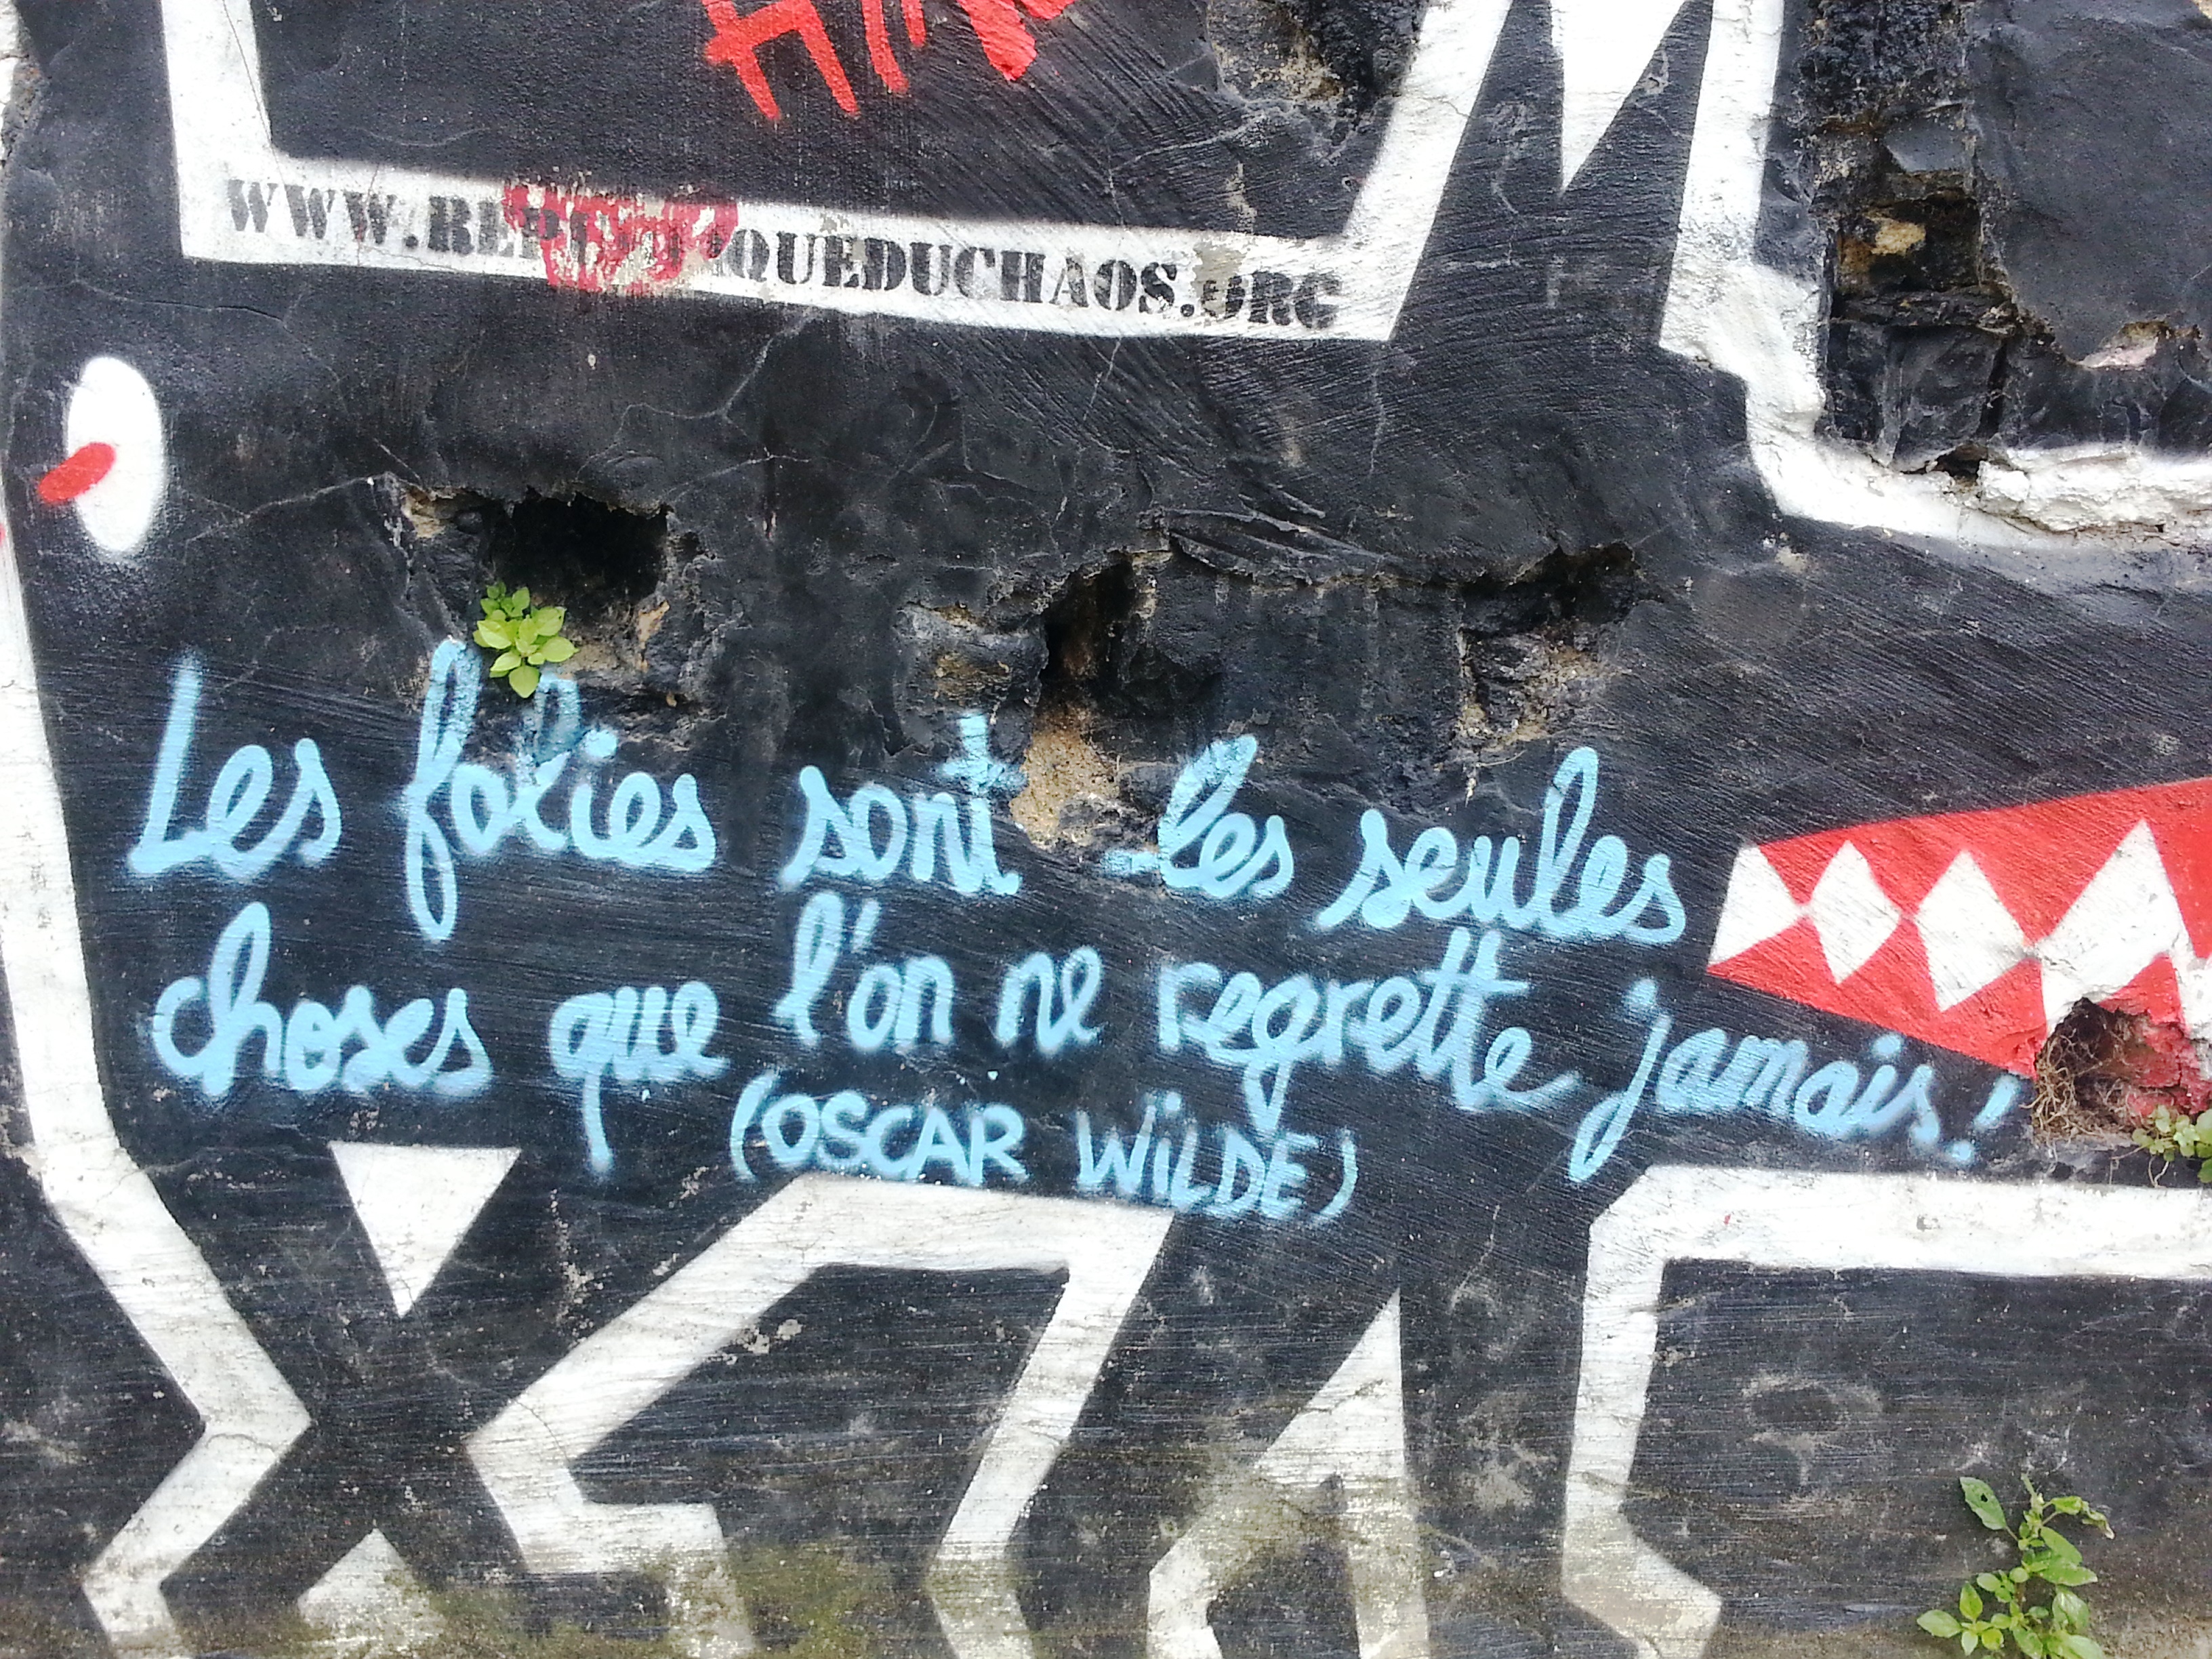 WWW. QUEDUCHAOS.ORG
Les folies sont les seules
choses que l'on ne regrette jamais!
(OSCAR WiLDE)